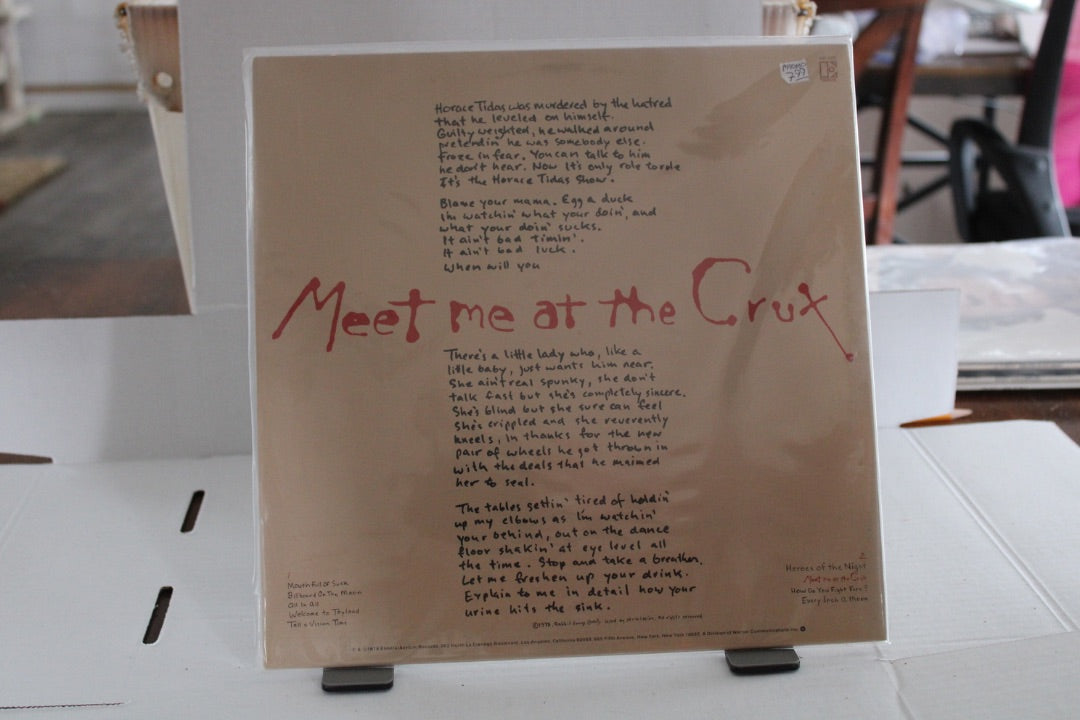 PROMO
7.99
Horace Tidas was murdered by the hatred
that he leveled on himself.
Guilty weighted, he walked around
pretendin' he was somebody else.
Froze in fear. You can talk to him
he don't hear. Now It's only role to role
It's the Horace Tidas Show.
Blame your mama. Egg a duck
I'm watchin' what your doin', and
what your doin' sucks.
It ain't bad timin'.
It ain't bad luck.
When will you
Meet me at the Crux
There's a little lady who, like a
little baby, just wants him near.
She ain't real spunky, she don't
talk fast but she's completely sincere.
She's blind but she sure can feel
She's crippled and she reverently
kneels, in thanks for the new
pair of wheels he got thrown in
with the deals that he maimed
her to seal.
The tables gettin' tired of holdin'
up my elbows as I'm watchin'
your behind, out on the dance
floor shakin' at eye level all
the time. Stop and take a breather.
Let me freshen up your drink.
Explain to me in detail how your
urine hits the sink.
1
Mouth Full Of Suck
Billboard On The Moon
All In All
Welcome to Thyland
Tell a Vision Time
2
Heroes of the Night
Meet me at the Crux
How Do You Fight Fire?
Every Inch A Moon